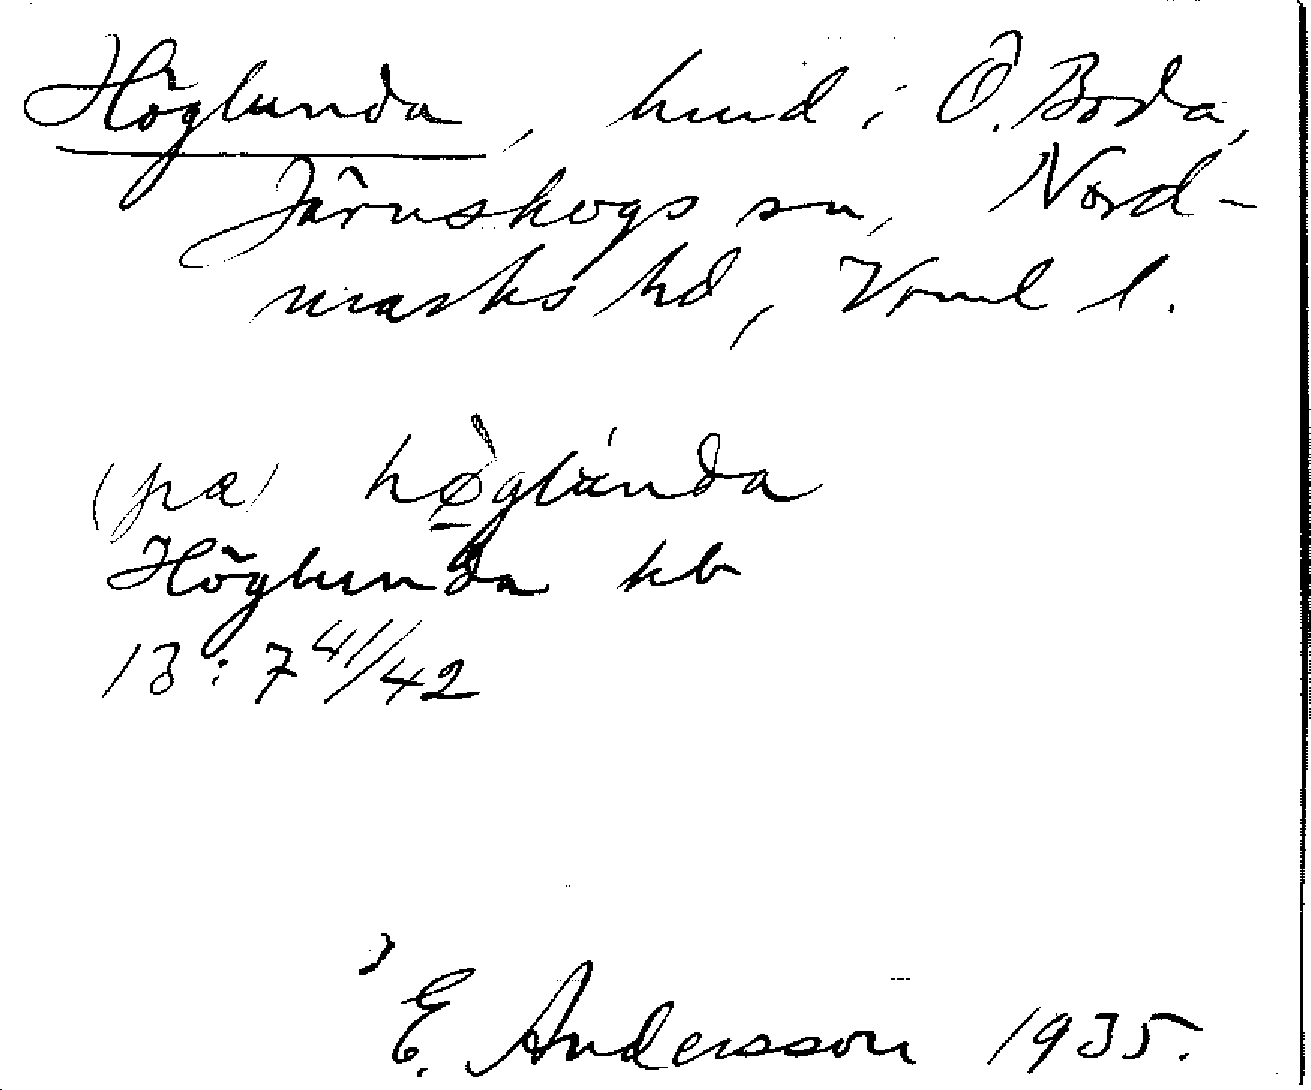 Höglunda, hmd i Ö. Boda,
Järnskogs sn, Nord-
marks hd, Vrml l.
(pa) hø̀glúnda
Höglunda kb
13:7 41/42
E. Andersson 1935.